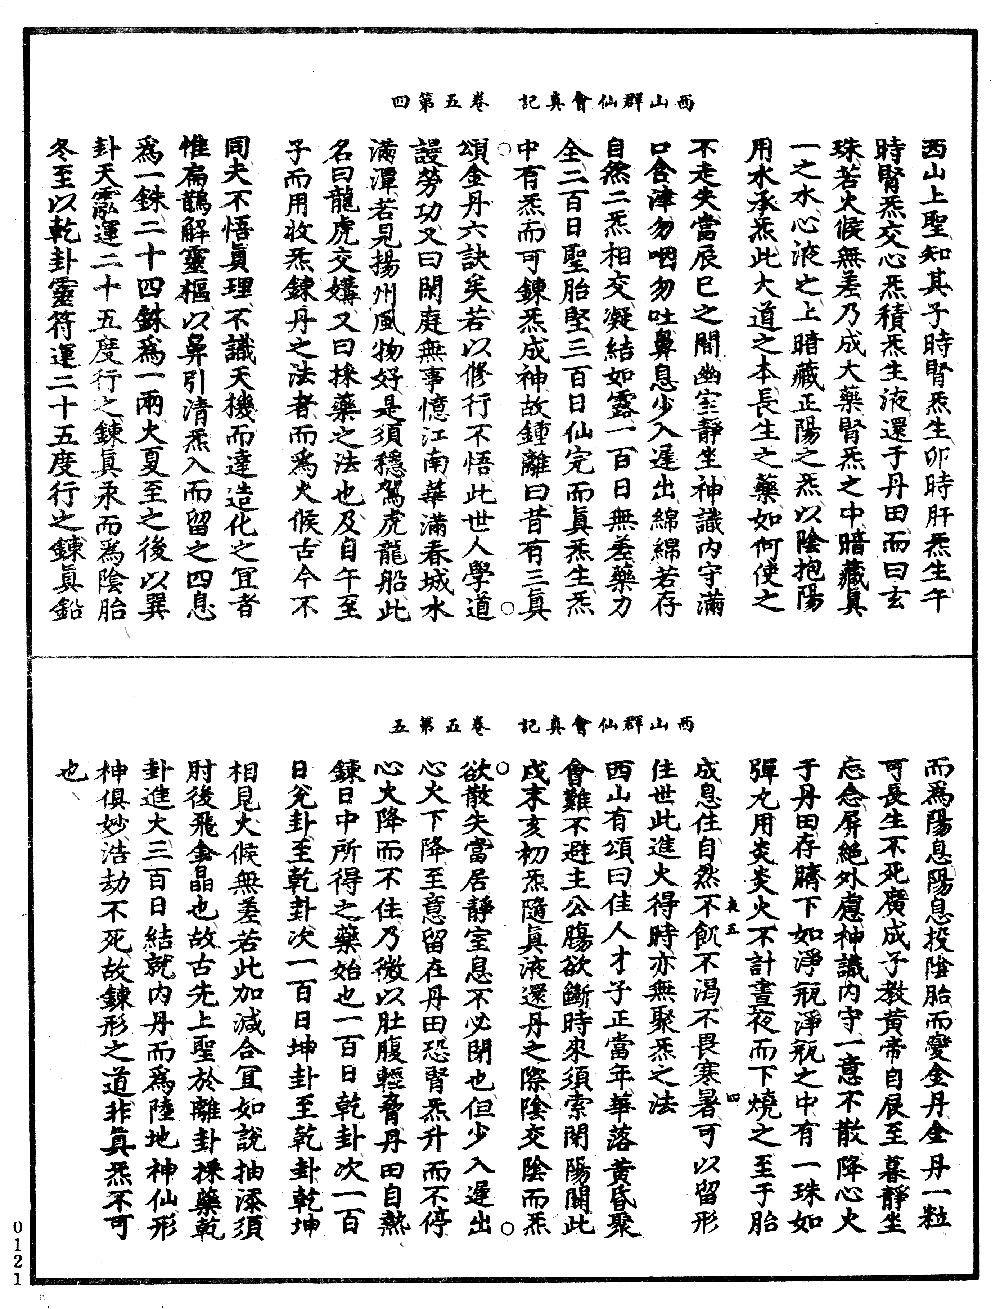 西山群仙會真記　卷五第四
西山上聖知其子時腎炁生卯時肝炁生午
時腎炁交心炁積炁生液還于丹田而曰玄
珠若火候無差乃成大藥腎炁之中暗藏真
一之水心液之上暗藏正陽之炁以陰抱陽
用水承炁此大道之本長生之藥如何使之
不走失當辰巳之間幽室靜坐神識內守滿
口含津勿咽勿吐鼻息少入遲出綿綿若存
自然二炁相交凝結如露一百日無差藥力
全二百日聖胎堅三百日仙完而真炁生炁
中有炁而可鍊炁成神故鍾離曰昔有三真
頌金丹六訣矣若以修行不悟此世人學道
謾勞功又曰閑庭無事憶江南華滿春城水
滿潭若見揚州風物好是須穩駕虎龍船此
名曰龍虎交媾又曰採藥之法也及自午至
子而用收炁鍊丹之法者而為火候古今不
同夫不悟真理不識天機而達造化之宜者
惟扁鵲解靈樞以鼻引清炁入而留之四息
為一銖二十四銖為一兩火夏至之後以巽
卦天霐運二十五度行之鍊真汞而為陰胎
冬至以乾卦靈符運二十五度行之鍊真鉛
西山群仙會真記　卷五第五
而為陽息陽息投陰胎而變金丹金丹一粒
可長生不死廣成子教黃帝自辰至暮靜坐
忘念屏絕外慮神識內守一意不散降心火
于丹田存臍下如淨瓶淨瓶之中有一珠如
彈丸用炎炎火不計晝夜而下燒之至于胎
成息住自然不飢不渴不畏寒暑可以留形
住世此進火得時亦無聚炁之法
西山有頌曰佳人才子正當年華落黃昏聚
會難不避主公腸欲斷時來須索閉陽關此
戌末亥初炁隨真液還丹之際陰交陰而炁
欲散失當居靜室息不必閉也但少入遲出
心火下降至意留在丹田恐腎炁升而不停
心火降而不住乃微以肚腹輕脅丹田自熱
鍊日中所得之藥始也一百日乾卦次一百
日兌卦至乾卦次一百日坤卦至乾卦乾坤
相見火候無差若此加減合宜如說抽添須
肘後飛金晶也故古先上聖於離卦採藥乾
卦進火三百日結就內丹而為陸地神仙形
神俱妙浩劫不死故鍊形之道非真炁不可
也
0121